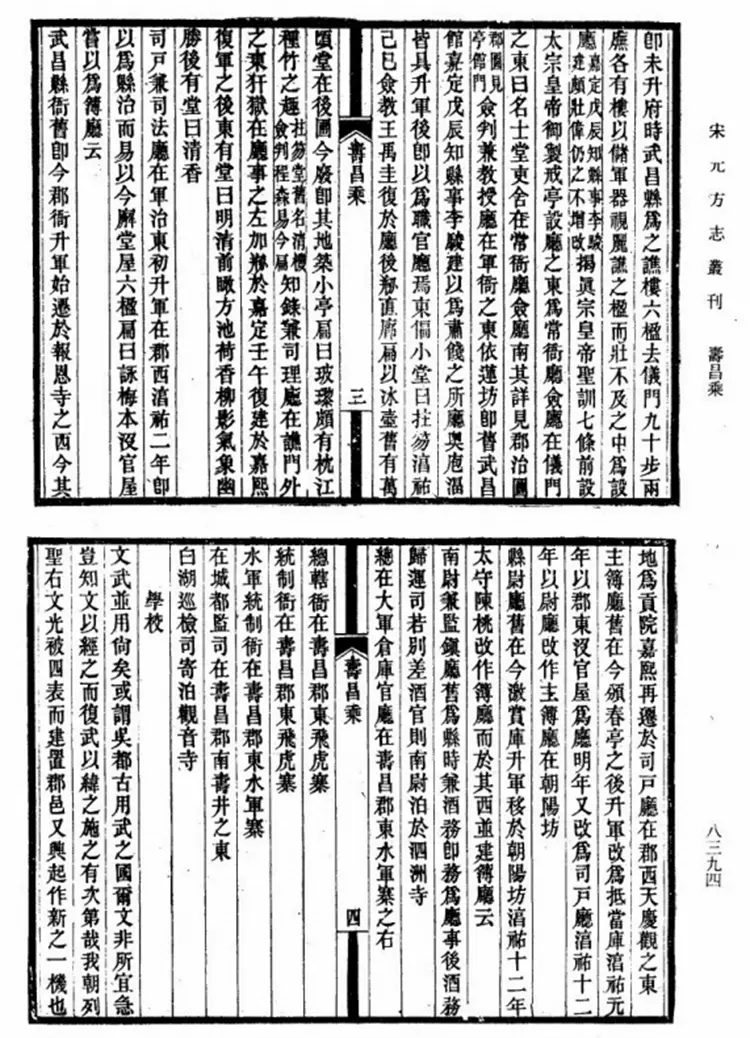 宋元方志叢刊　壽昌乘
八三九四
卽未升府時武昌縣爲之譙樓六楹去儀門九十步兩
廡各有樓以儲軍器視麗譙之楹而壯不及之中爲設
廳嘉定戊辰知縣事李駿建頗壯偉仍之不增改揭眞宗皇帝聖訓七條前設
太宗皇帝御製戒亭設廳之東爲常衙廳僉廳在儀門
之東曰名士堂吏舍在常衙廳僉廳南其詳見郡治圖
郡圃見亭館門僉判兼教授廳在軍衙之東依蓮坊卽舊武昌
館嘉定戊辰知縣事李駿建以爲肅餞之所廳奧庖湢
皆具升軍後卽以爲職官廳焉東偏小堂曰拄笏淯祐
己巳僉教王禹圭復於廳後剏直廊扁以冰壺舊有萬
壽昌乘
三
頃堂在後圃今廢卽其地築小亭扁曰玻瓈頗有枕江
種竹之趣拄笏堂舊名清樾僉判程森易今扁知錄兼司理廳在譙門外
之東犴獄在廳事之左加剏於嘉定壬午復建於嘉熙
復軍之後東有堂曰明清前瞰方池荷香柳影氣象幽
勝後有堂曰清香
司戸兼司法廳在軍治東初升軍在郡西淯祐二年卽
以爲縣治而易以今廨堂屋六楹扁曰詠梅本沒官屋
武昌縣衙舊卽今郡衙升軍始遷於報恩寺之西今其
當以爲簿廳云
地爲貢院嘉熙再遷於司戸廳在郡西天慶觀之東
主簿廳舊在今頒春亭之後升軍改爲抵當庫淯祐元
年以郡東沒官屋爲廳明年又改爲司戸廳淯祐十二
年以尉廳改作主簿廳在朝陽坊
縣尉廳舊在今激賞庫升軍移於朝陽坊淯祐十二年
太守陳桃改作簿廳而於其西並建簿廳云
南尉兼監鎭廳舊爲縣時兼酒務卽務爲廳事後酒務
歸運司若別差酒官則南尉泊於泗洲寺
總在大軍倉庫官廳在壽昌郡東水軍寨之右
壽昌乘
四
總轄衙在壽昌郡東飛虎寨
統制衙在壽昌郡東飛虎寨
水軍統制衙在壽昌郡東水軍寨
在城都監司在壽昌郡南壽井之東
白湖巡檢司寄泊觀音寺
學校
文武並用尙矣或謂吳都古用武之國爾文非所宜急
豈知文以經之而復武以緯之施之有次第哉我朝列
聖右文光被四表而建置郡邑又興起作新之一機也